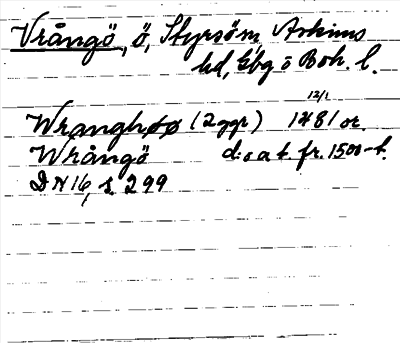 Vrångö, ö, Styrsö sn, Askims
hd, Gbg o Boh. l.
12/1
Wranghøø (2 ggr) 1481 or.
Wrångö d:o a b. fr. 1500-t.
DN 16, s 299